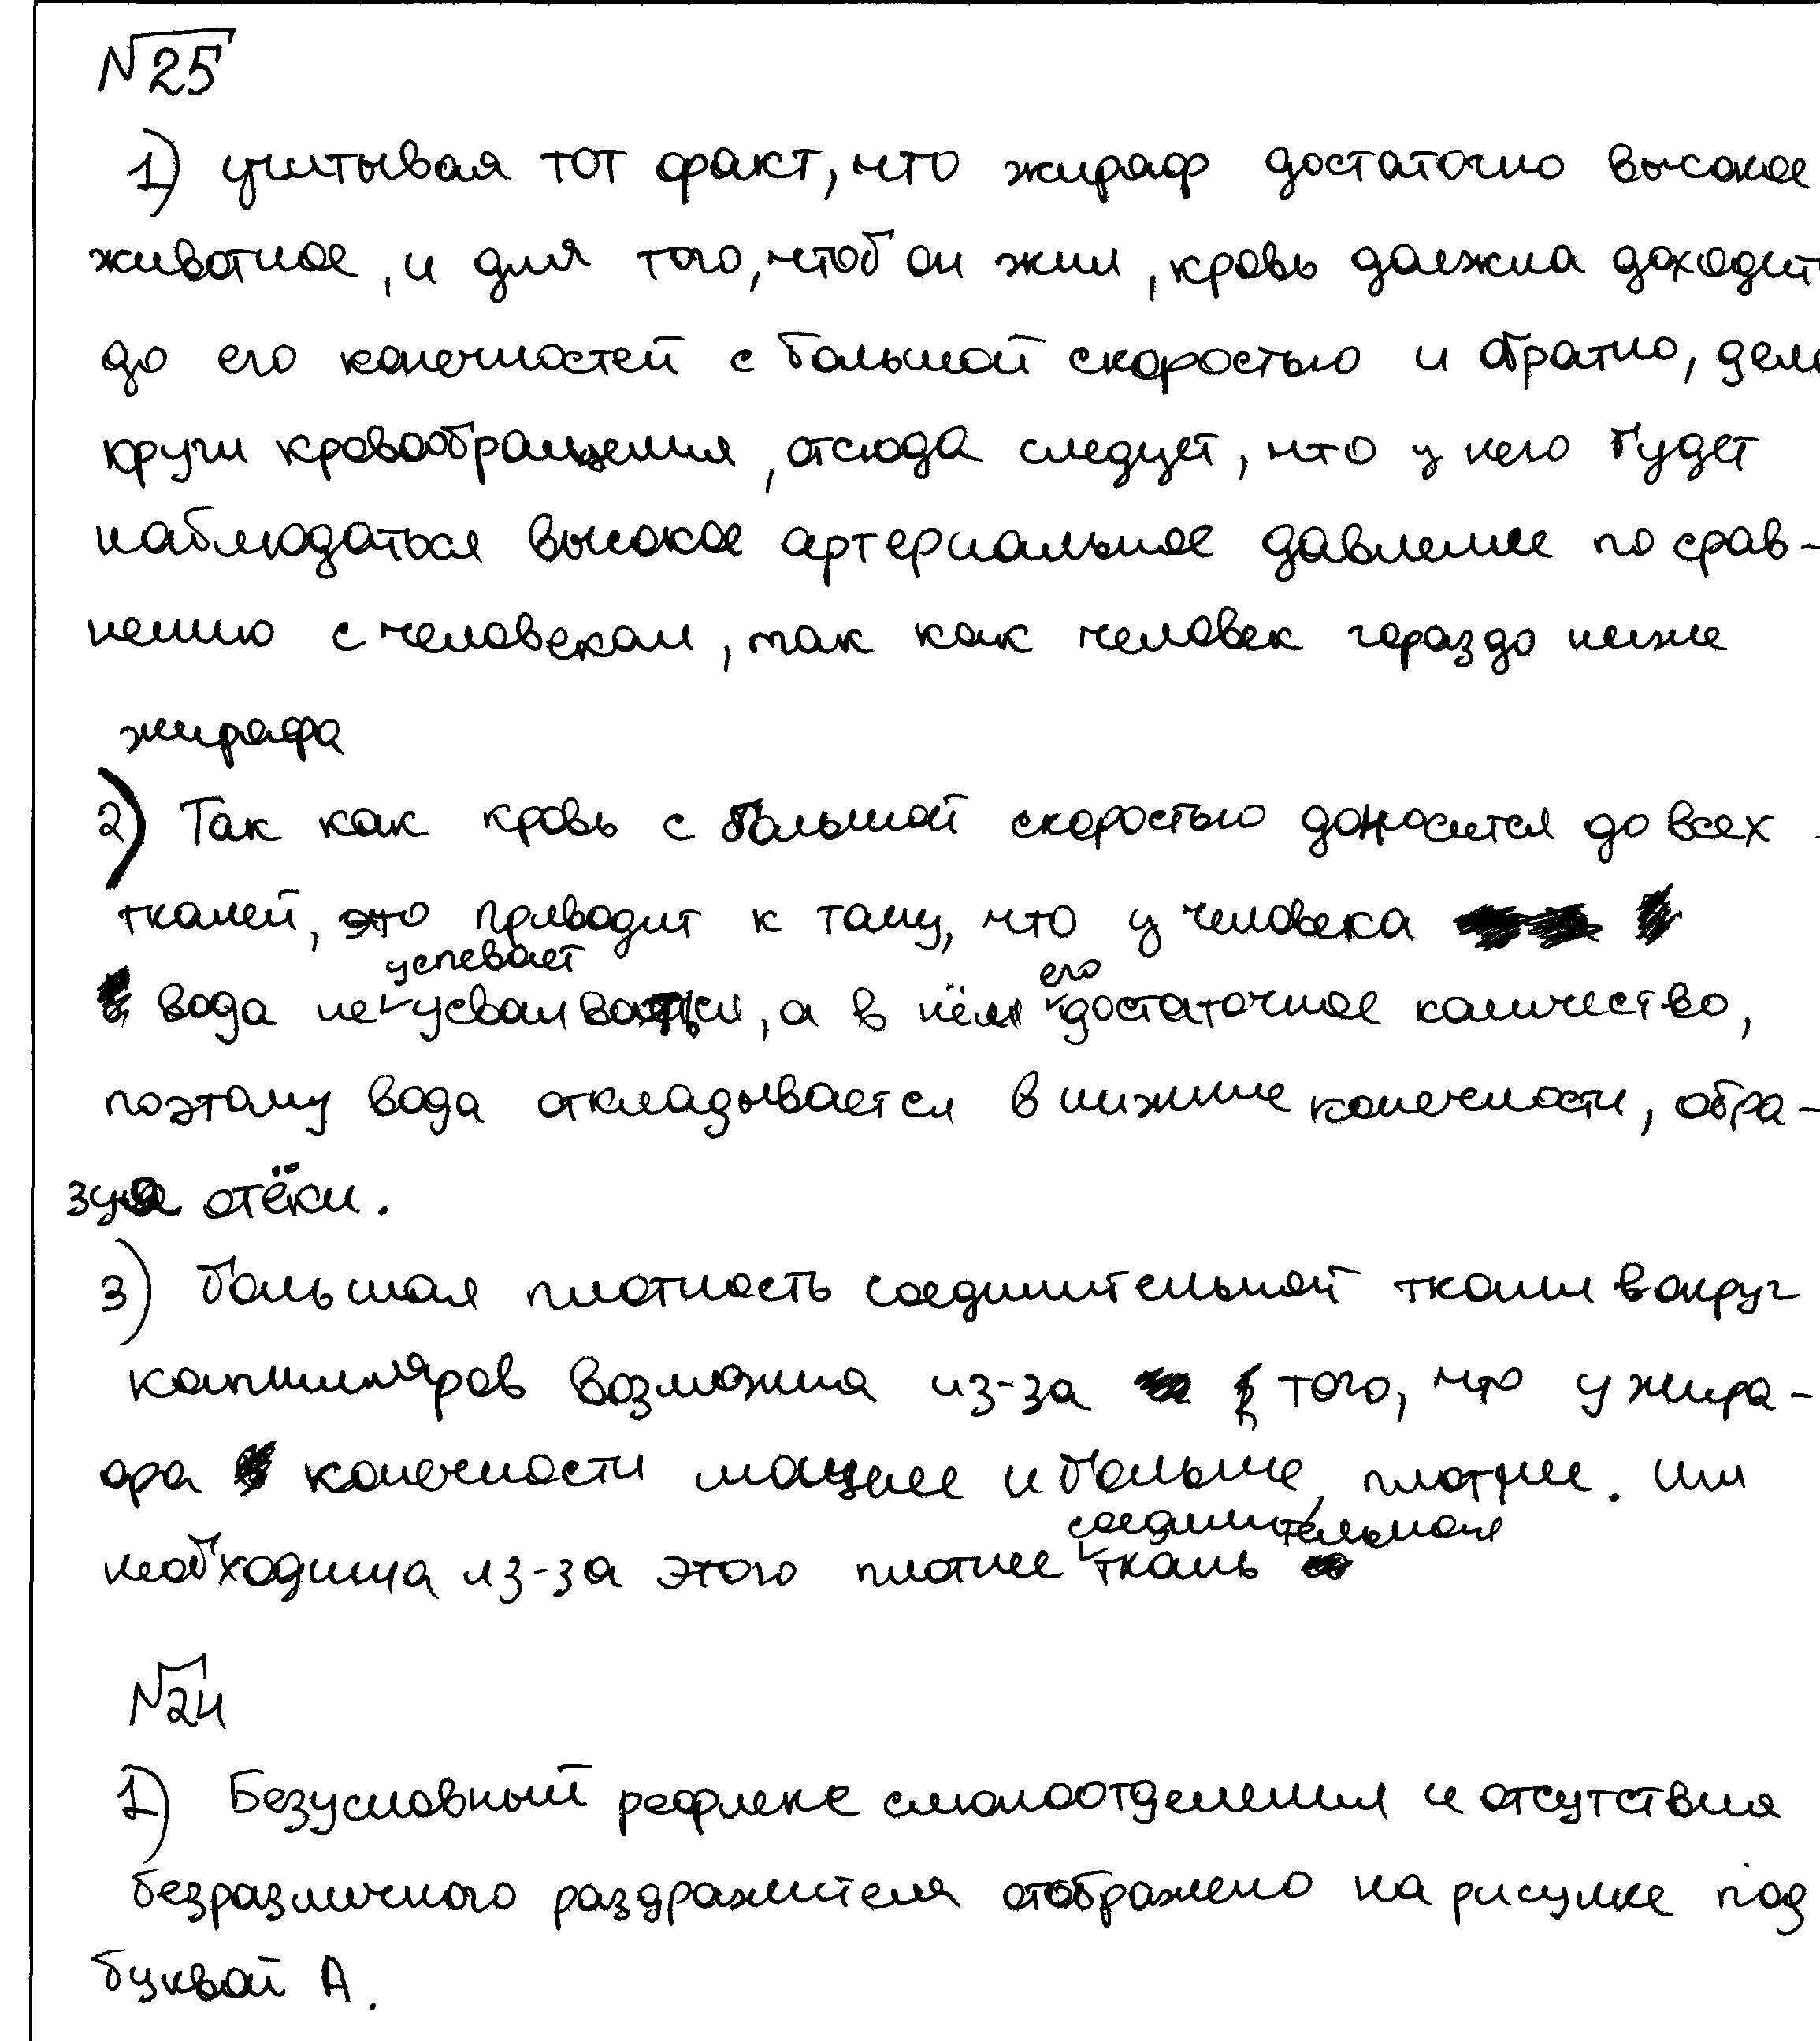 №25
1) учитывая тот факт, что жираф достаточно высокое
животное, и для того, чтоб он жил, кровь должна доходит
до его конечностей с большой скоростью и обратно, дела
круги кровообращения, отсюда следует, что у него будет
наблюдаться высокое артериальное давление по срав-
нению с человеком, так как человек гораздо ниже
жирафа
2) Так как кровь с большой скоростью доносится до всех
тканей, это приводит к тому, что у человека
вода не успевает усваиваться, а в нём его достаточное количество,
поэтому вода откладывается в нижние конечности, обра-
зуя отёки.
3) большая плотность соединительной ткани вокруг
капилляров возможна из-за того, что у жира-
фа конечности мощнее и больше, плотнее. им
необходима из-за этого плотнее соединительная ткань
№24
1) Безусловный рефлекс слюноотделения и отсутствия
безразличного раздражителя отображено на рисунке под
буквой А.